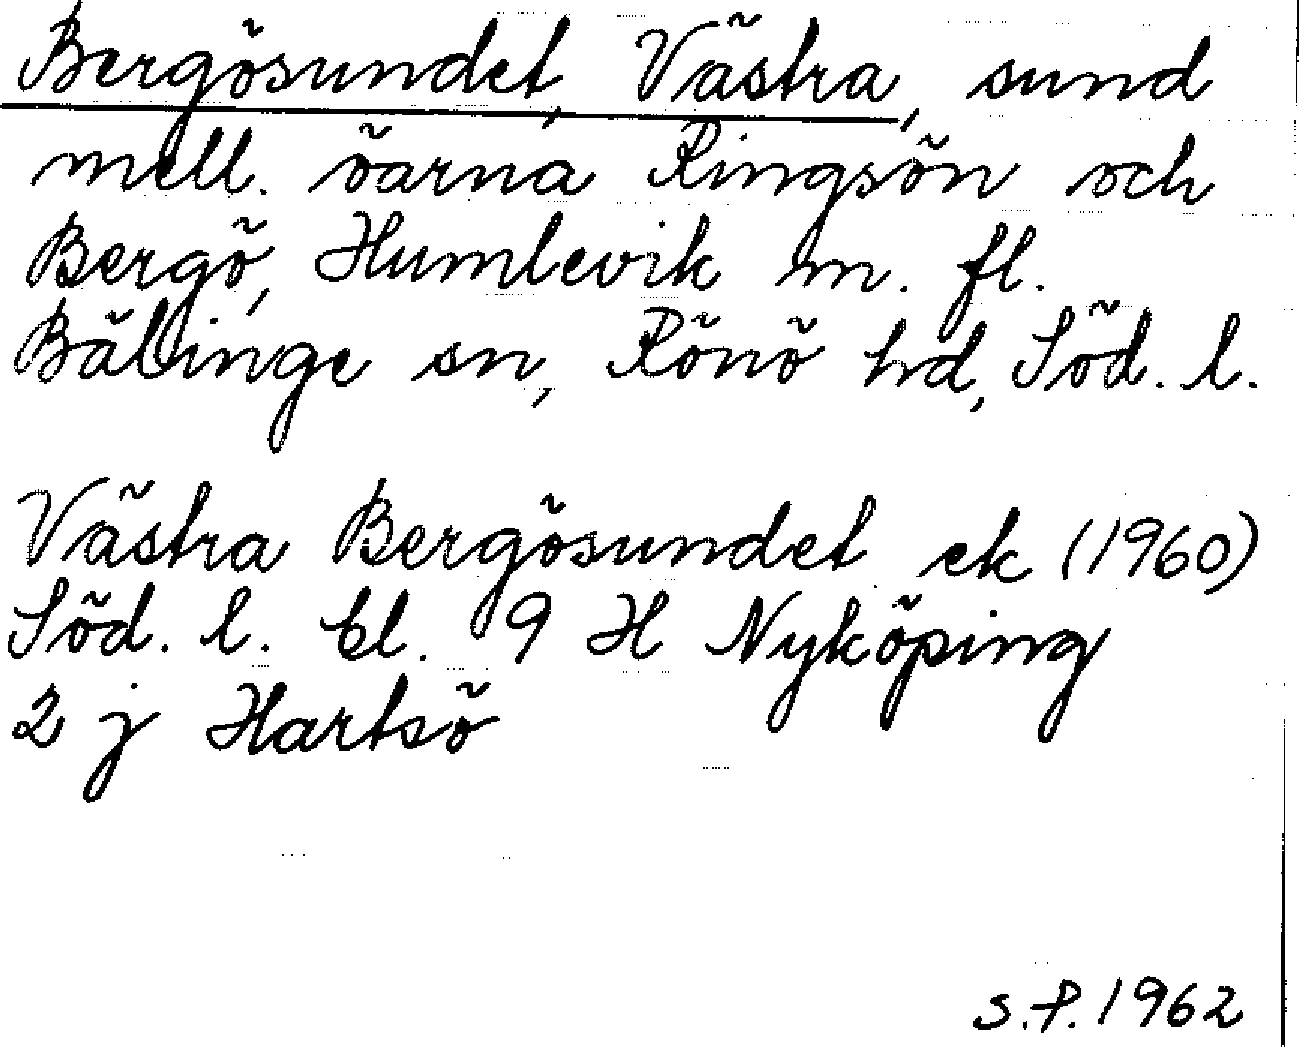 Bergösundet, Västra, sund
mell. öarna Ringsön och
Bergö, Humlevik m. fl.
Bälinge sn, Rönö hd, Söd. l.
Västra Bergösundet ek (1960)
Söd. l. bl. 9 H Nyköping
2 j Hartsö
S.P. 1962